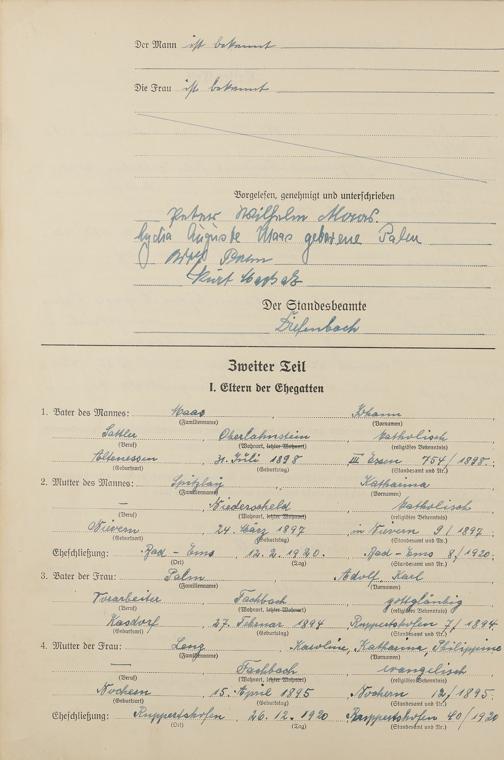 Der Mann ist bekannt
Die Frau ist bekannt
Vorgelesen, genehmigt und unterschrieben
Peter Wilhelm Maas.
Lydia Auguste Maas geborene Palm
Palm
Kurt
Der Standesbeamte
Diefenbach
Zweiter Teil
I. Eltern der Ehegatten
1. Vater des Mannes: Maas Johann
(Familienname) (Vornamen)
Sattler Oberlahnstein katholisch
(Beruf) (Wohnort, letzter Wohnort) (religiöses Bekenntnis)
Altenessen 31. Juli 1898 III Essen 754/1898.
(Geburtsort) (Geburtstag) (Standesamt und Nr.)
2. Mutter des Mannes: Katharina
(Familienname) (Vornamen)
— Niederscheld katholisch
(Beruf) (Wohnort, letzter Wohnort) (religiöses Bekenntnis)
Nievern 24. März 1897 in Nievern 9/1897
(Geburtsort) (Geburtstag) (Standesamt und Nr.)
Eheschließung: Bad-Ems 12.2.1920. Bad-Ems 8/1920.
(Ort) (Tag) (Standesamt und Nr.)
3. Vater der Frau: Palm Adolf Karl
(Familienname) (Vornamen)
Vorarbeiter Fachbach gottgläubig
(Beruf) (Wohnort, letzter Wohnort) (religiöses Bekenntnis)
Kasdorf 27. Februar 1894 Ruppertshofen 7/1894
(Geburtsort) (Geburtstag) (Standesamt und Nr.)
4. Mutter der Frau: Lenz Karoline, Katharina, Philippine
(Familienname) (Vornamen)
— Fachbach evangelisch
(Beruf) (Wohnort, letzter Wohnort) (religiöses Bekenntnis)
Nochern 15. April 1895 Nochern 12/1895.
(Geburtsort) (Geburtstag) (Standesamt und Nr.)
Eheschließung: Ruppertshofen 26.12.1920 Ruppertshofen 40/1920
(Ort) (Tag) (Standesamt und Nr.)